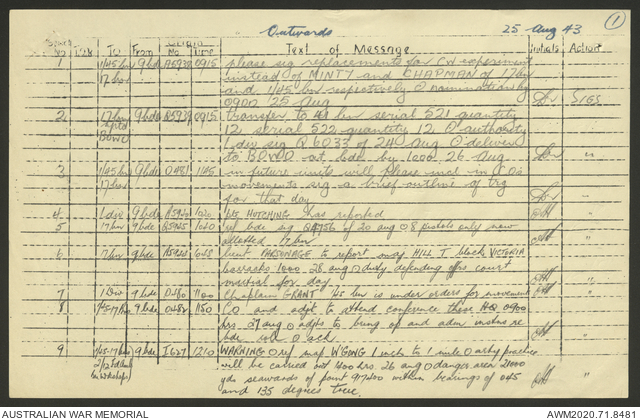 Outwards 25 Aug 43 1
No Time To From Origin No Time Text of Message Initials Action
1 1/45 bn 9 bde A5938 0915 please sig replacements for CW experiment
17 bn instead of MINTY and CHAPMAN of 17 bn
and 1/45 bn respectively O nomination by
0900 25 Aug Sigs
2 17 bn 9 bde A5939 0915 transfer to bn serial 521 quantity
BOWO 12 serial 522 quantity 12 O authority
1 div sig Q6033 of 24 Aug O deliver
to BOWO at bde by 1000 26 Aug "
3 1/45 bn 9 bde O481 1145 in future units will please incl in CO's
17 bn movements sig a brief outline of trg
for that day "
4 1 div 9 bde A5940 1020 pte HUTCHINGS has reported "
5 17 bn 9 bde 1040 ref bde sig of 20 aug O 8 pistols only now
allotted 17 bn "
6 17 bn 9 bde 1045 lieut PARSONAGE to report maj HILL T block VICTORIA
barracks 1000 26 aug O duty defending offrs court
martial for day "
7 1 Div 9 bde O480 1100 Chaplain GRANT 45 bn is under orders for movement "
8 1/45-17 bns 9 bde O482 1150 CO and adjt to attend conference these HQ 0900
hrs 27 aug O adjts to bring op and adm instns re
bde O ack "
9 1/45-17 bns 9 bde I627 1210 WARNING O ref map W'GONG 1 inch to 1 mile O arty practice
2/12 Fd Amb will be carried out 1400 hrs 26 aug O danger area 21000
Wkshops yds seawards of point 917400 within bearings of 045
and 135 degrees true. "
AUSTRALIAN WAR MEMORIAL AWM2020.71.8481